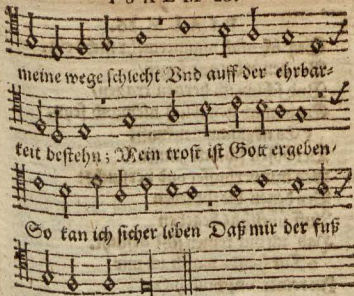 meine wege schlecht Vnd auff der ehrbar-
keit bestehn; Mein trost ist Gott ergeben-
So kan ich sicher leben Daß mir der fuß